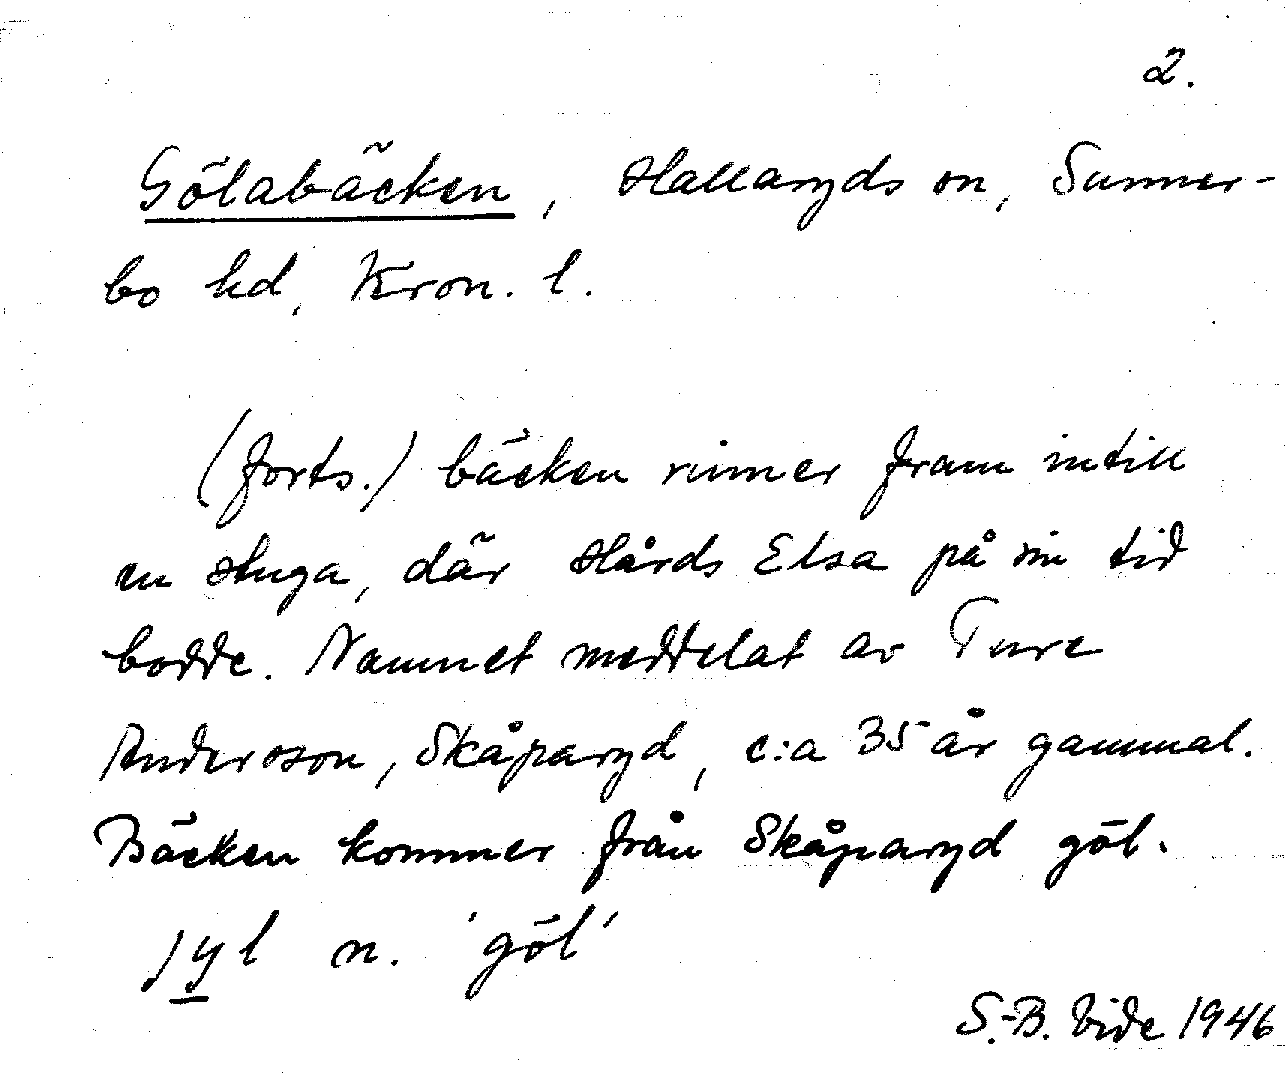 2.
Gölabäcken, Hallaryds sn, Sunner-
bo hd, Kron. l.
(forts.) bäcken rinner fram intill
en stuga, där Hårds Elsa på sin tid
bodde. Namnet meddelat av Ture
Andersson, Skåparyd, c:a 35 år gammal.
Bäcken kommer från Skåparyd göl.
jyl n. 'göl'
S.-B. Vide 1946